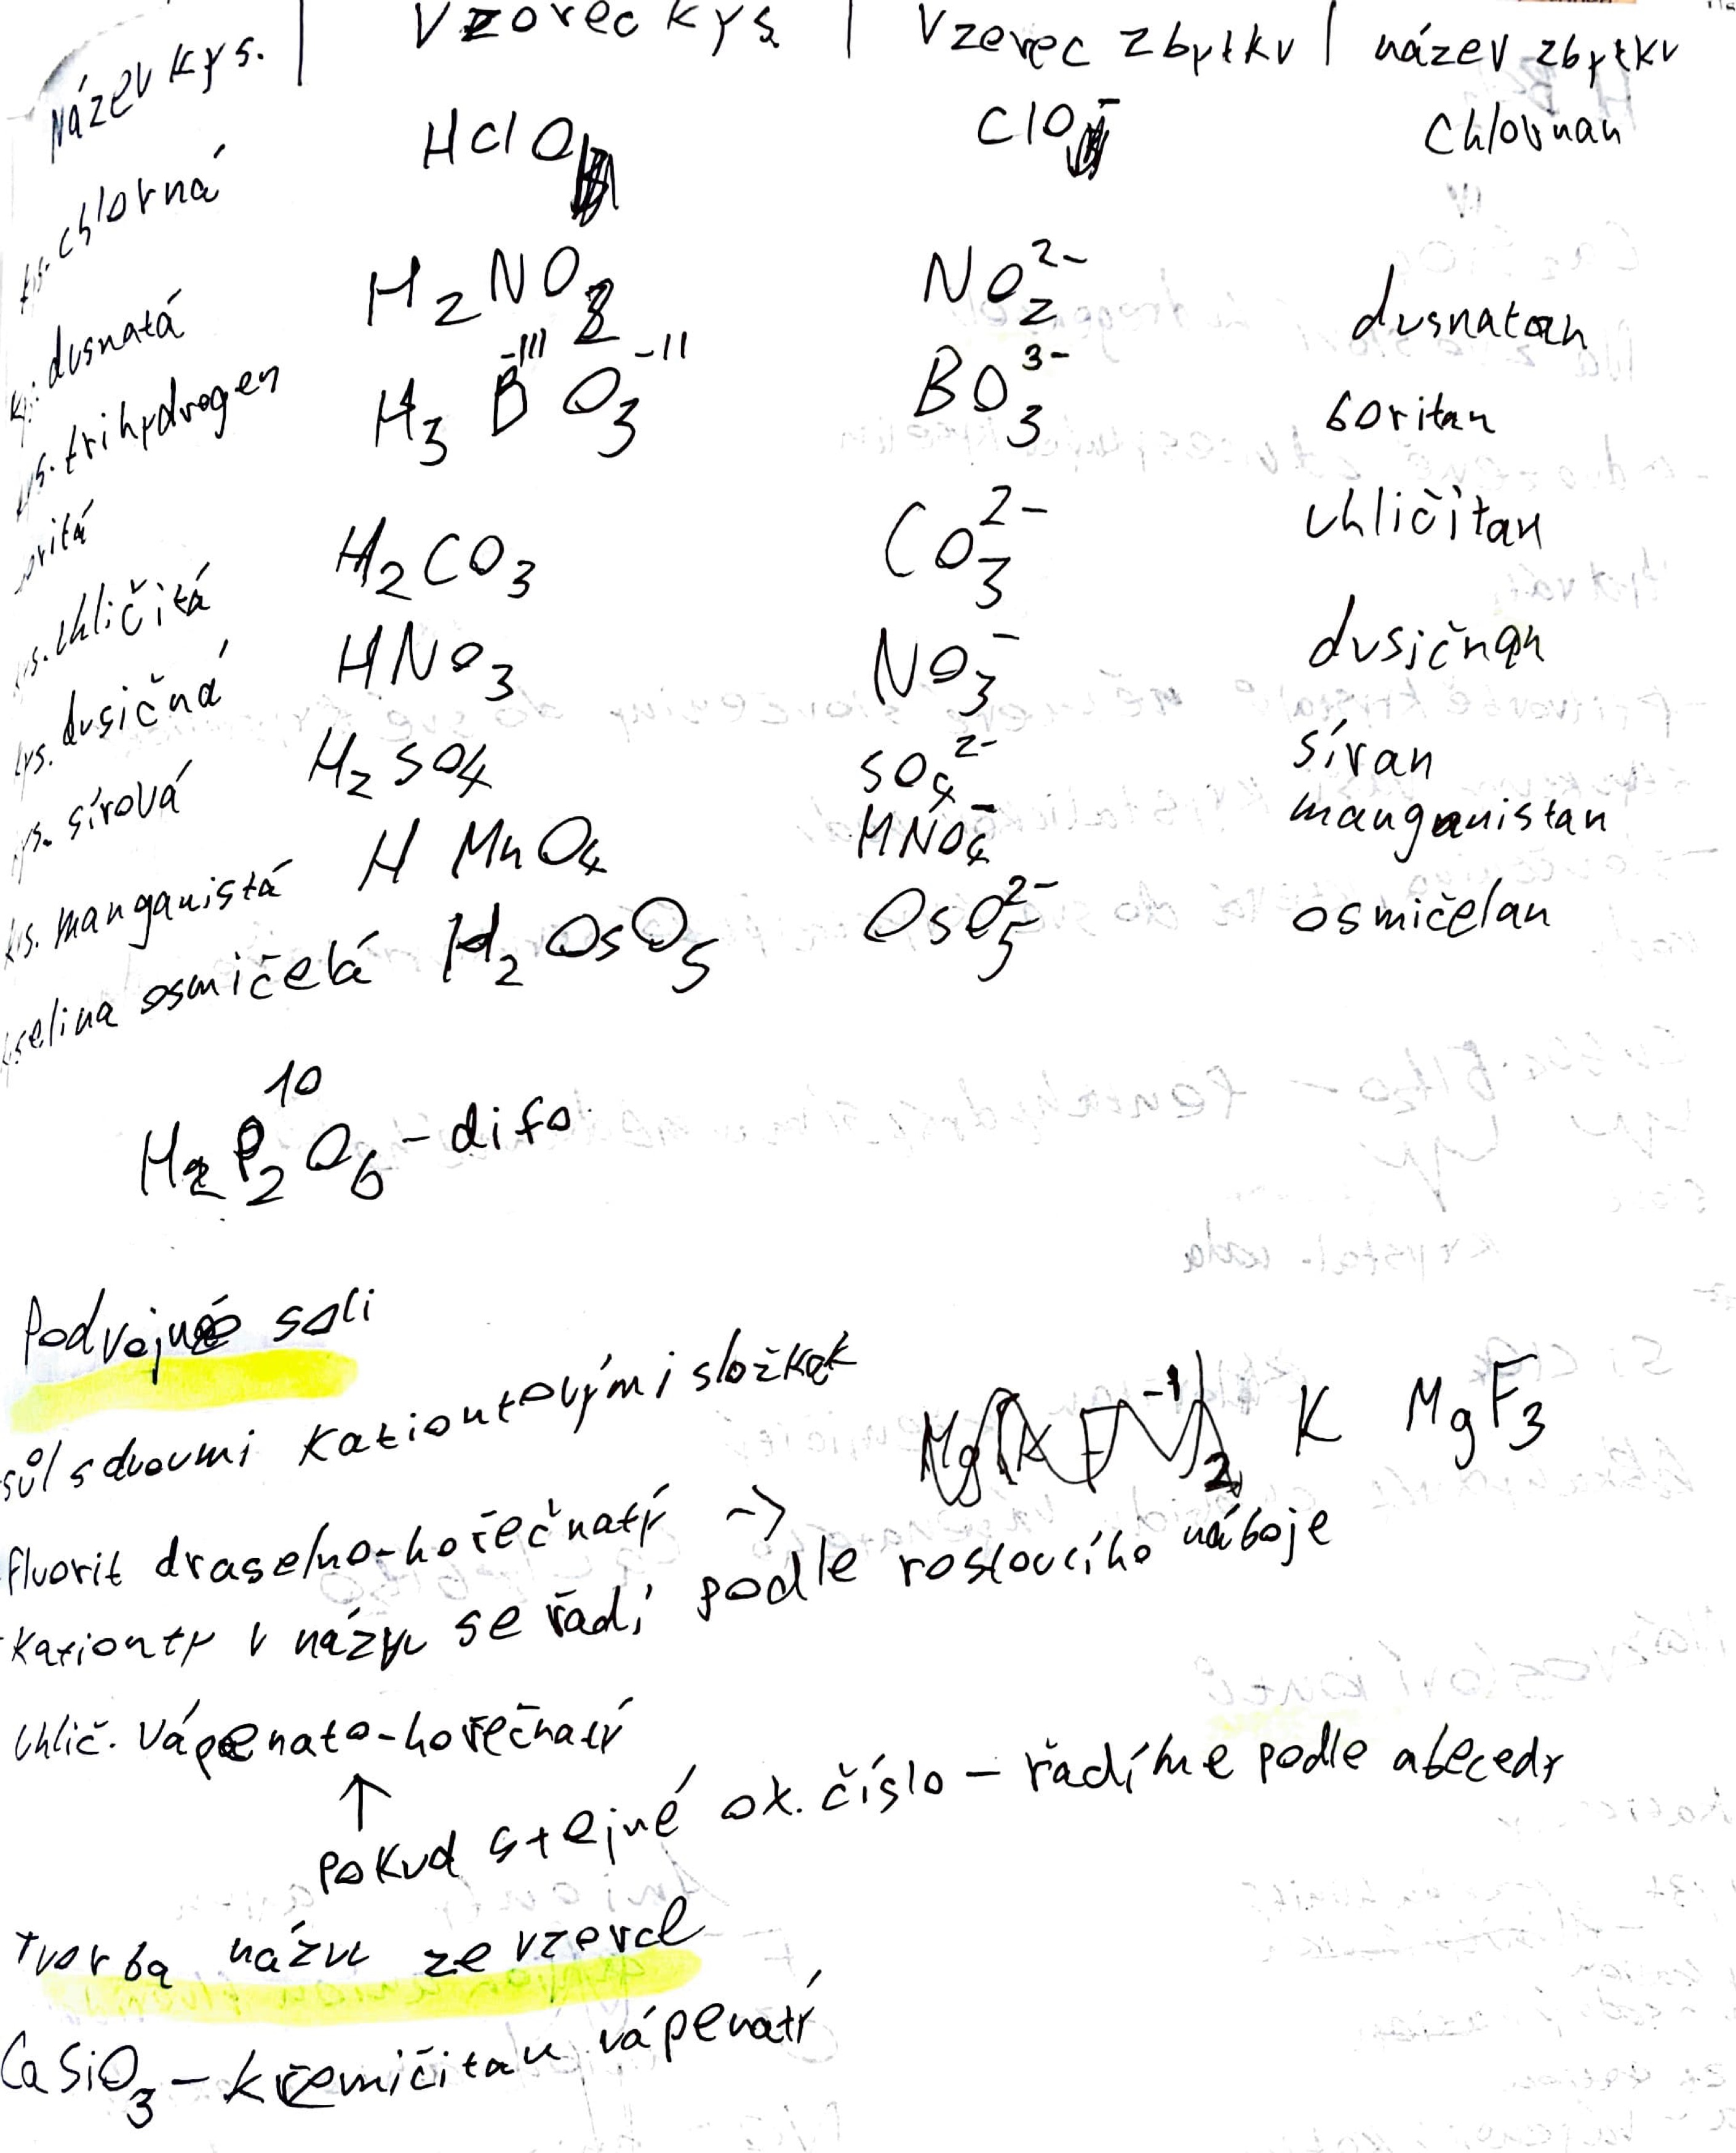 Název kys. | Vzorec kys. | Vzorec zbytku | název zbytku
kys. chlorná HClO ClO⁻ Chlornan
ky. dusnatá H₂NO₂ NO₂²⁻ dusnatan
kys. trihydrogen H₃B⁻ᴵᴵᴵO₃⁻ᴵᴵ BO₃³⁻ boritan
boritá
kys. uhličitá H₂CO₃ CO₃²⁻ uhličitan
kys. dusičná HNO₃ NO₃⁻ dusičnan
kys. sírová H₂SO₄ SO₄²⁻ síran
kys. manganistá HMnO₄ MNO₄⁻ manganistan
kyselina osmičelá H₂OsO₅ OsO₅²⁻ osmičelan
10
H₂P₂O₆ - difo.
Podvojné soli
sůl s dvoumi kationtovými složkak
fluorit draselno-hořečnatý -> K MgF₃
kationty v názvu se řadí podle rostoucího náboje
Uhlič. Vápenato-hořečnatý
↑
pokud stejné ox. číslo - řadíme podle abecedy
Tvorba názvu ze vzorce
CaSiO₃ - křemičitan vápenatý